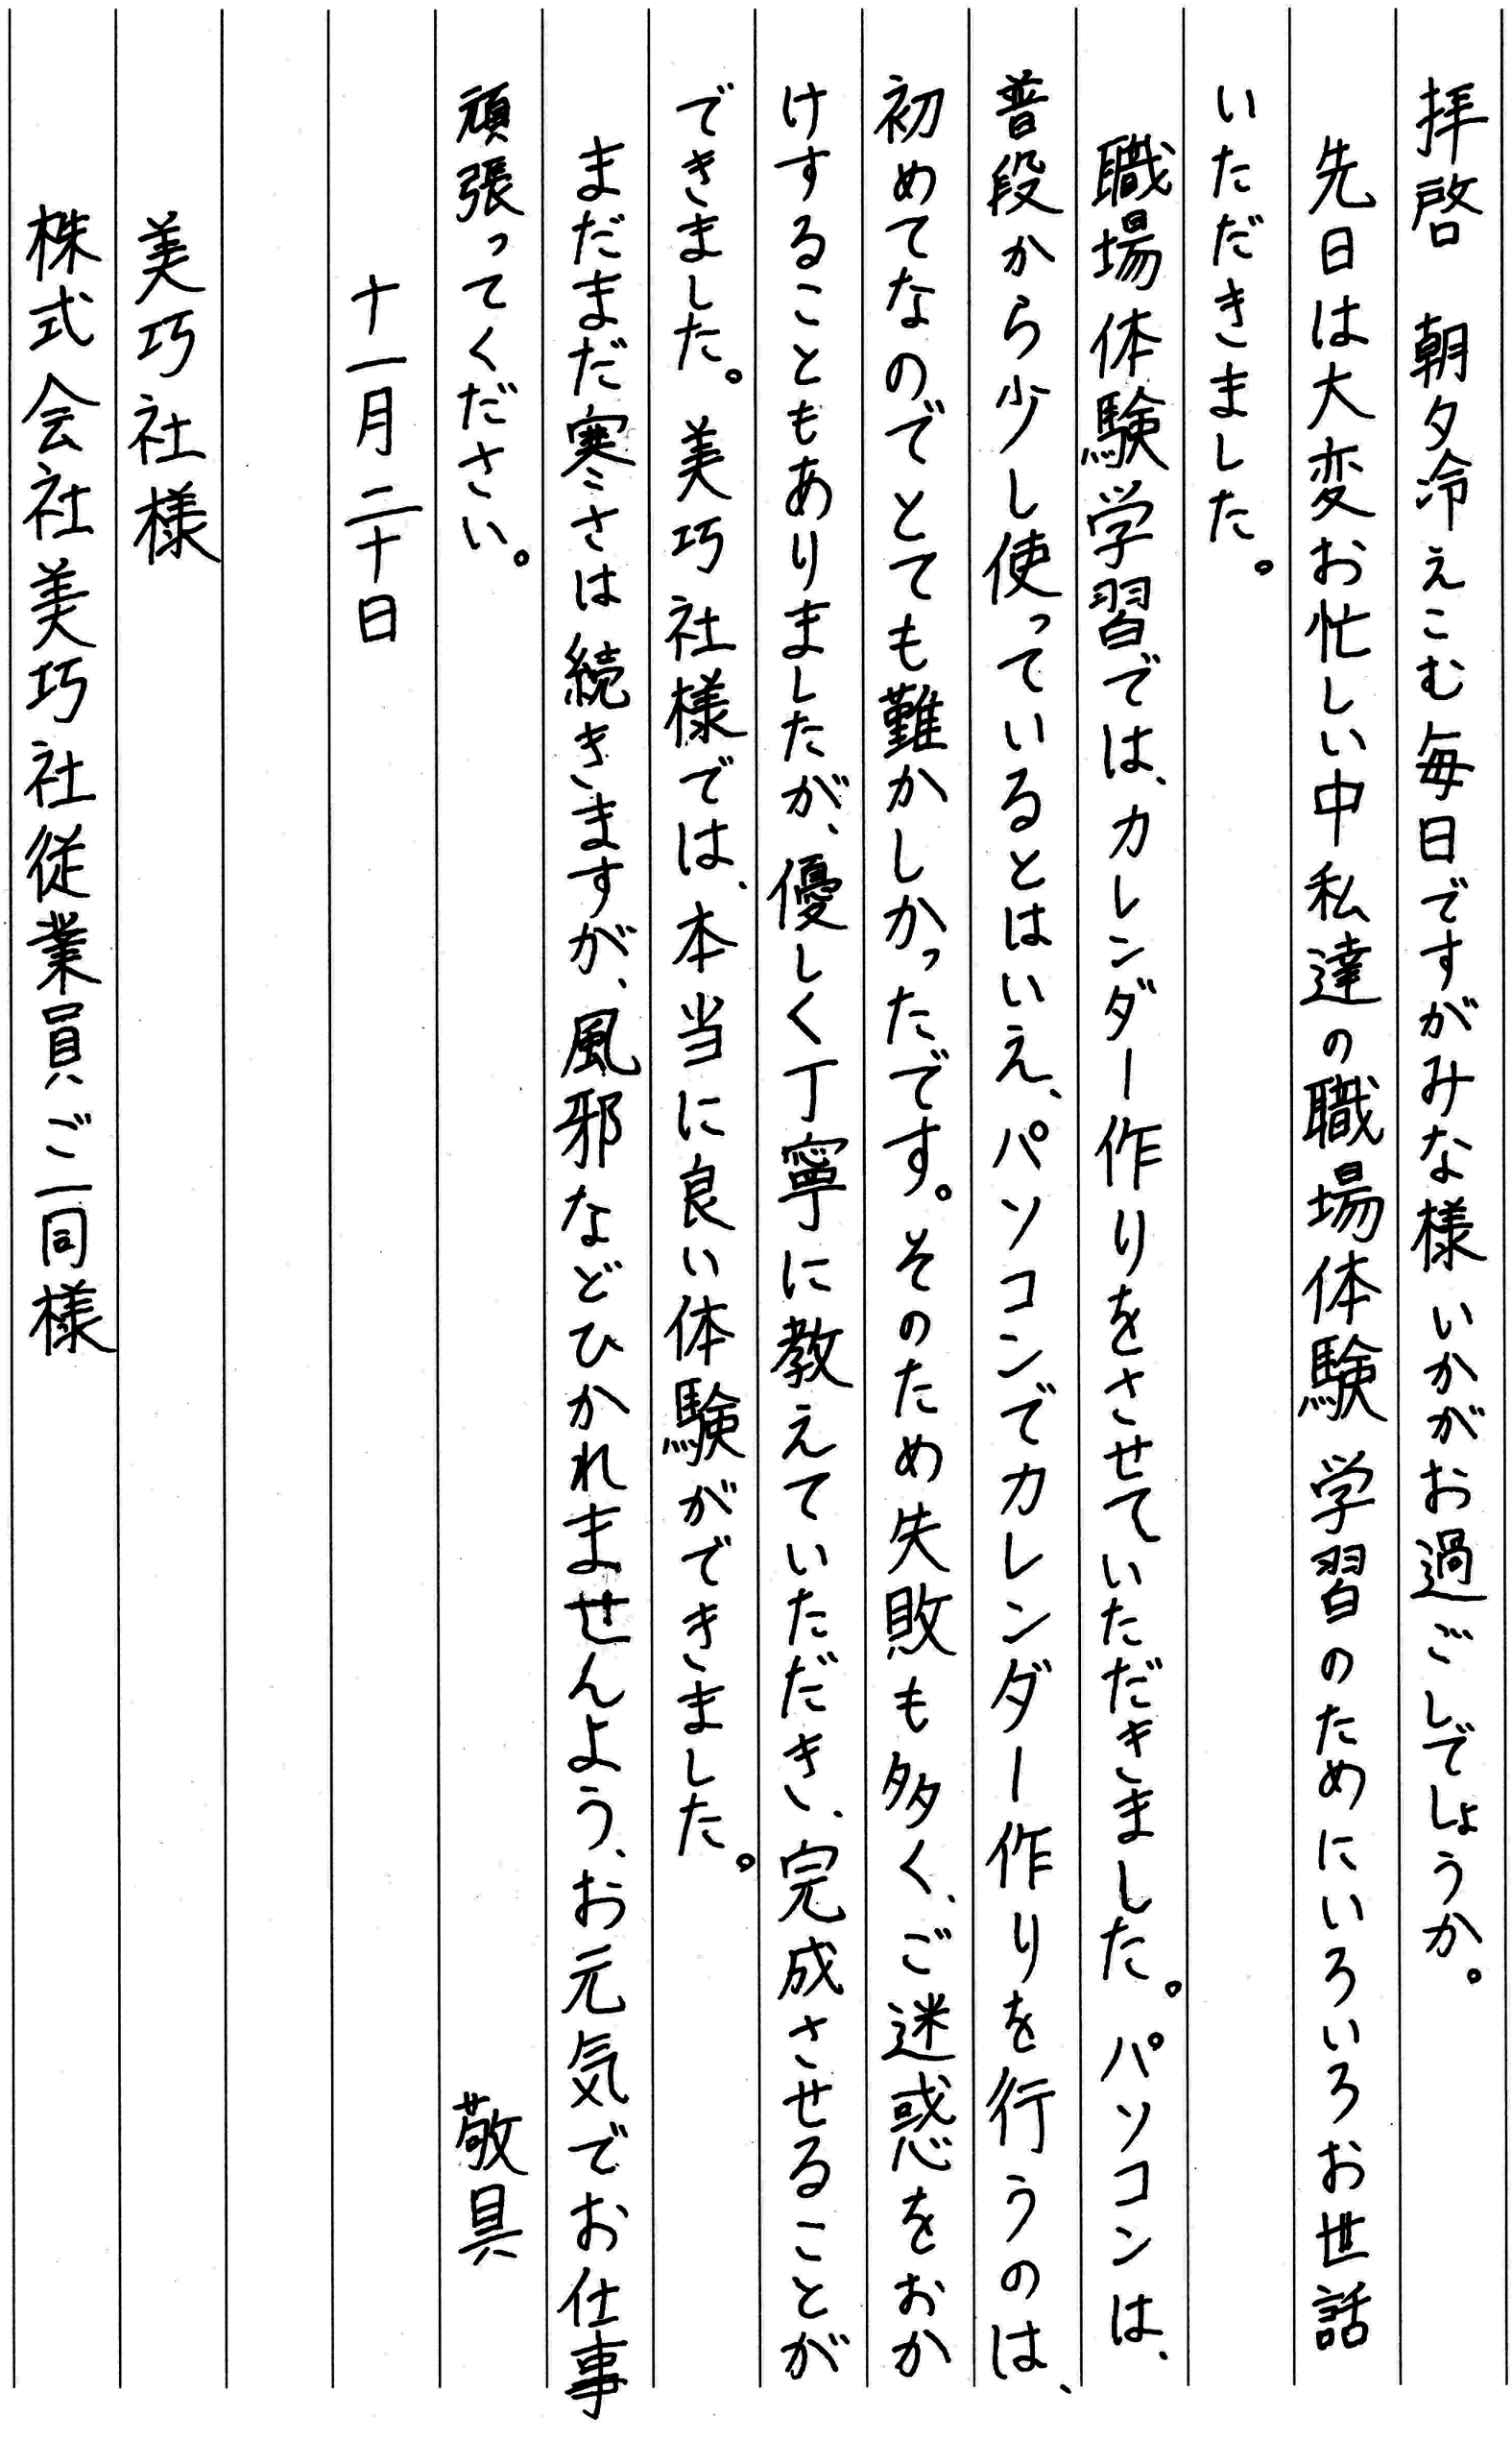 拝啓　朝夕冷えこむ毎日ですがみな様いかがお過ごしでしょうか。
先日は大変お忙しい中私達の職場体験学習のためにいろいろお世話
いただきました。
職場体験学習では、カレンダー作りをさせていただきました。パソコンは、
普段から少し使っているとはいえ、パソコンでカレンダー作りを行うのは、
初めてなのでとても難かしかったです。そのため失敗も多く、ご迷惑をおか
けすることもありましたが、優しく丁寧に教えていただき、完成させることが
できました。美巧社様では、本当に良い体験ができました。
まだまだ寒さは続きますが、風邪などひかれませんよう、お元気でお仕事
頑張ってください。　敬具
十一月二十日
美巧社様
株式会社美巧社従業員ご一同様